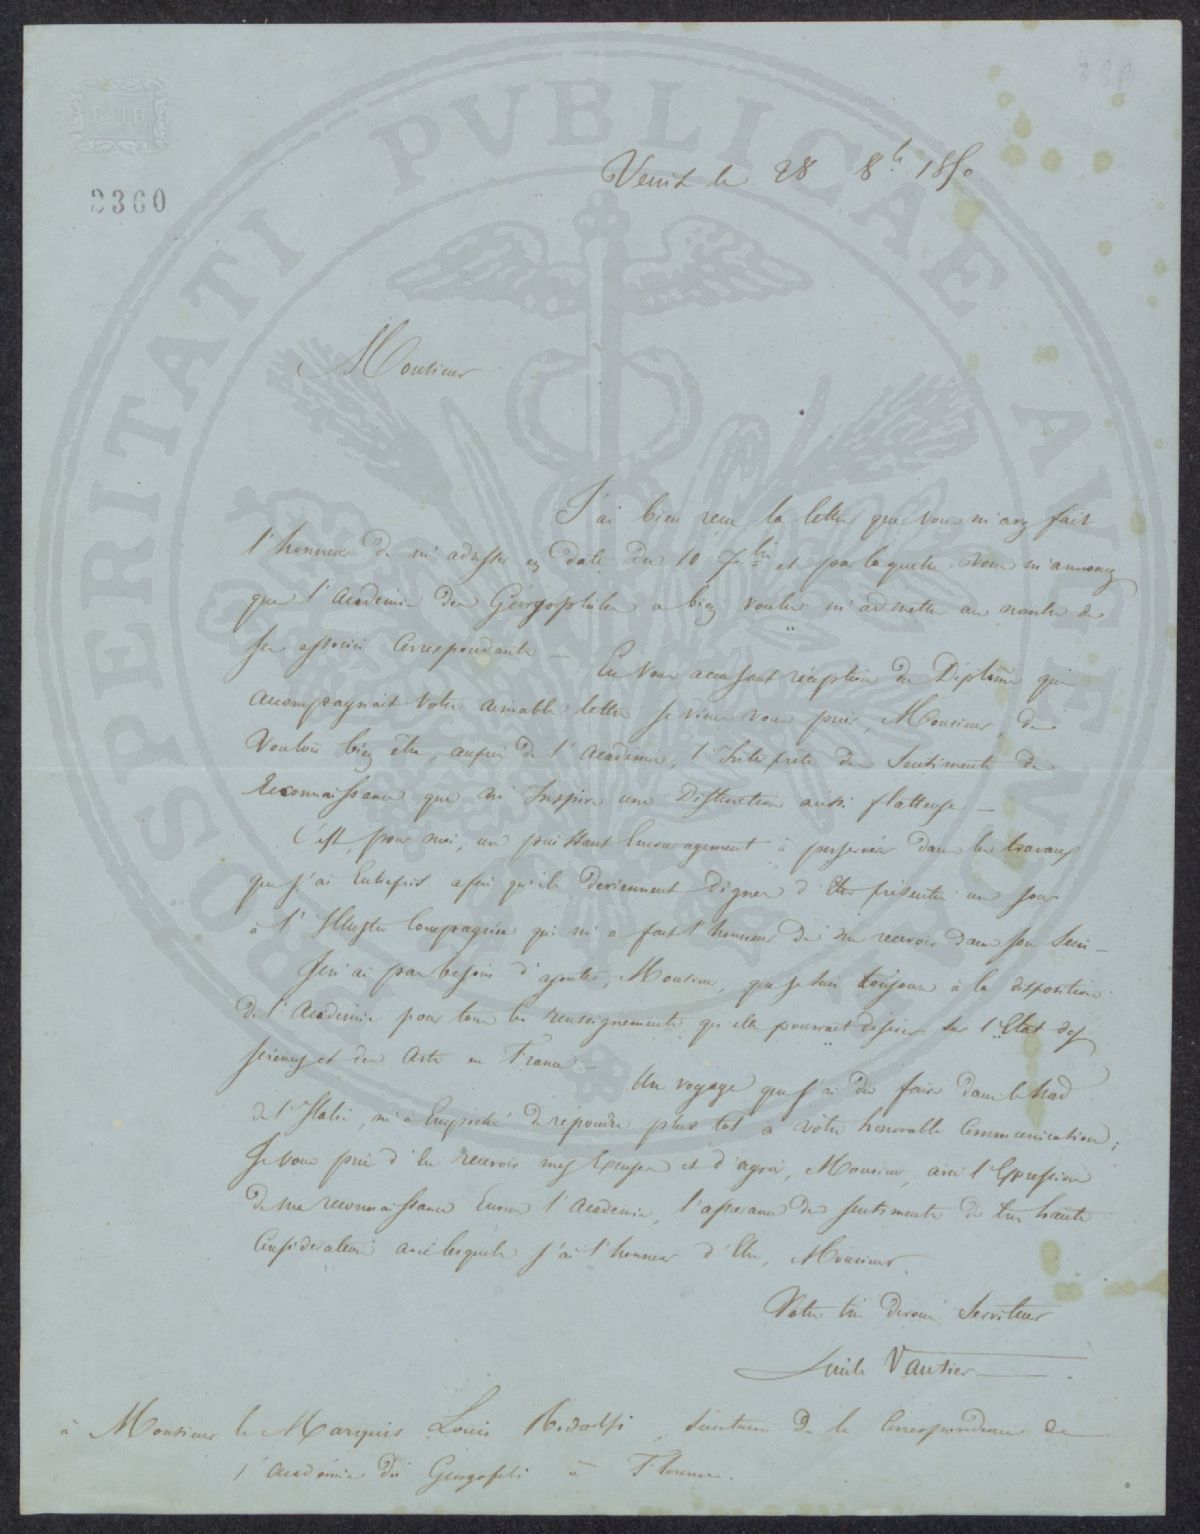 BATH
2360
Venise le 28 8.b 1850
Monsieur
J'ai bien reçu la lettre que vous m'avez fait
l'honneur de m'adresser en date du 10 7bre et par laquelle vous m'annoncez
que l'académie des Géorgophiles a bien voulu m'admettre au nombre de
ses associés Correspondants — En vous accusant réception du Diplôme qui
accompagnait votre aimable lettre je viens vous prier, Monsieur, de
Vouloir bien être, auprès de l'académie, l'Interprète des Sentiments de
Reconnaissance que m'Inspire une Distinction aussi flatteuse —
C'est, pour moi, un puissant Encouragement à persévérer dans les travaux
que j'ai Entrepris afin qu'ils deviennent Dignes d'Etre présentés un jour
à l'Illustre Compagnie qui m'a fait l'honneur de me recevoir dans son Sein —
Je n'ai pas besoin d'ajouter, Monsieur, que je suis toujours à la disposition
de l'Académie pour tous les renseignements qu'elle pourrait désirer sur l'Etat des
sciences et des Arts en France — Un voyage que j'ai dû faire dans le
de l'Italie, m'a Empêché de répondre plus tôt à votre honorable Communication;
Je vous prie d'en recevoir mes Excuses et d'agréer, Monsieur, avec l'Expression
de ma reconnaissance Envers l'académie, l'assurance des sentiments de très haute
Considération avec lesquels j'ai l'honneur d'Etre, Monsieur,
Votre très dévoué Serviteur
Emile Vautier
à Monsieur le Marquis Louis Ridolfi, Secrétaire de la Correspondance de
l'académie des Georgofili à Florence.
PROSPERITATI PVBLICAE AVGENDAE